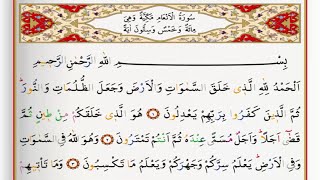 سُورَةُ الْاَنْعَامِ مَكِّيَّةٌ وَهِيَ
مِائَةٌ وَخَمْسٌ وَسِتُّونَ اٰيَةً
بِسْمِ اللّٰهِ الرَّحْمٰنِ الرَّحِيمِ
اَلْحَمْدُ لِلّٰهِ الَّذِي خَلَقَ السَّمٰوَاتِ وَالْاَرْضَ وَجَعَلَ الظُّلُمَاتِ وَالنُّورَ ط
ثُمَّ الَّذِينَ كَفَرُوا بِرَبِّهِمْ يَعْدِلُونَ ۝ هُوَ الَّذِي خَلَقَكُمْ مِنْ طِينٍ ثُمَّ
قَضٰٓى اَجَلًا ط وَاَجَلٌ مُسَمًّى عِنْدَهُ ثُمَّ اَنْتُمْ تَمْتَرُونَ ۝ وَهُوَ اللّٰهُ فِي السَّمٰوَاتِ
وَفِي الْاَرْضِ ط يَعْلَمُ سِرَّكُمْ وَجَهْرَكُمْ وَيَعْلَمُ مَا تَكْسِبُونَ ۝ وَمَا تَأْتِيهِمْ